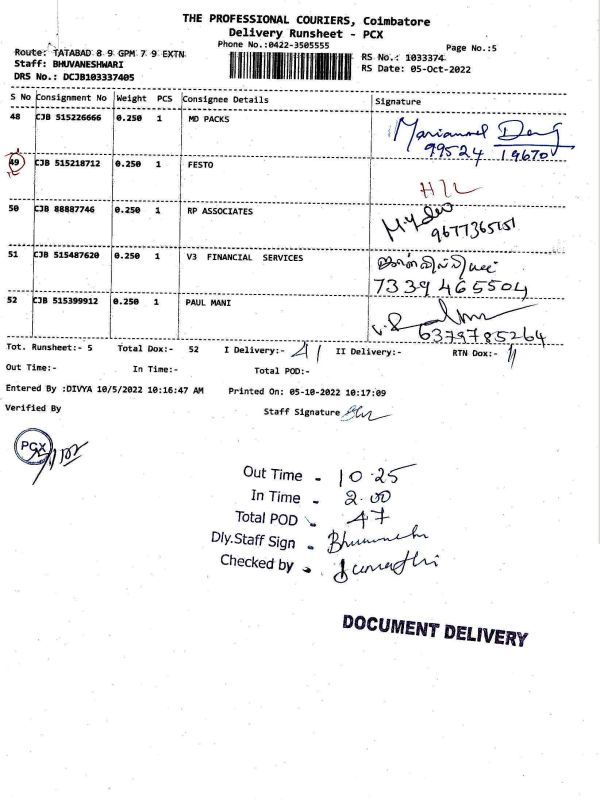 THE PROFESSIONAL COURIERS, Coimbatore
Delivery Runsheet - PCX
Phone No.:0422-3505555
Page No.:5
Route: TATABAD 8 9 GPM 7 9 EXTN
RS No.: 1033374
Staff: BHUVANESHWARI
RS Date: 05-Oct-2022
DRS No.: DCJB103337405
S No Consignment No Weight PCS Consignee Details Signature
48 CJB 515226666 0.250 1 MD PACKS
99524 19670
49 CJB 515218712 0.250 1 FESTO
50 CJB 88887746 0.250 1 RP ASSOCIATES
9677365151
51 CJB 515487620 0.250 1 V3 FINANCIAL SERVICES
7339465504
52 CJB 515399912 0.250 1 PAUL MANI
6379785264
Tot. Runsheet:- 5 Total Dox:- 52 I Delivery:- II Delivery:- RTN Dox:-
Out Time:- In Time:- Total POD:-
Entered By :DIVYA 10/5/2022 10:16:47 AM Printed On: 05-10-2022 10:17:09
Verified By Staff Signature
PCX
Out Time - 10.25
In Time - 2.00
Total POD - 47
Dly.Staff Sign -
Checked by - Sumathi
DOCUMENT DELIVERY